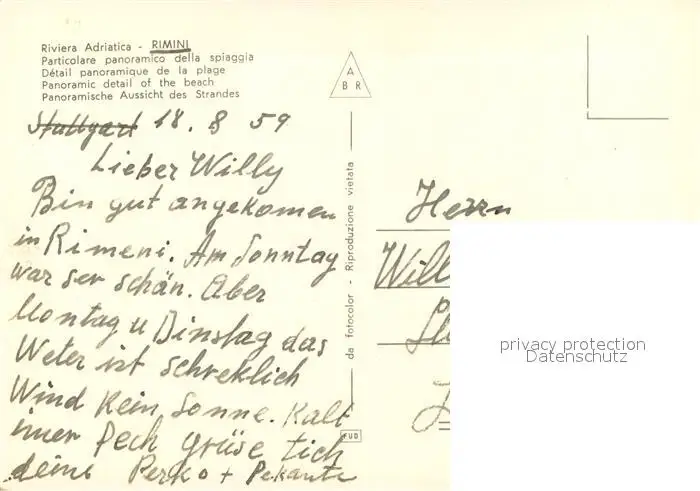 Riviera Adriatica - RIMINI
Particolare panoramico della spiaggia
Détail panoramique de la plage
Panoramic detail of the beach
Panoramische Aussicht des Strandes
A
BR
Stuttgart 18. 8 59
Lieber Willy
Bin gut angekomen
in Rimeni. Am Sonntag
war ser schön. Aber
Montag u Dinstag das
Weter ist schreklich
Wind Kein Sonne. Kalt
imer Pech grüse tich
deine Perko + Pekante
da fotocolor - Riproduzione vietata
FUD
Herrn
Will
privacy protection
Datenschutz